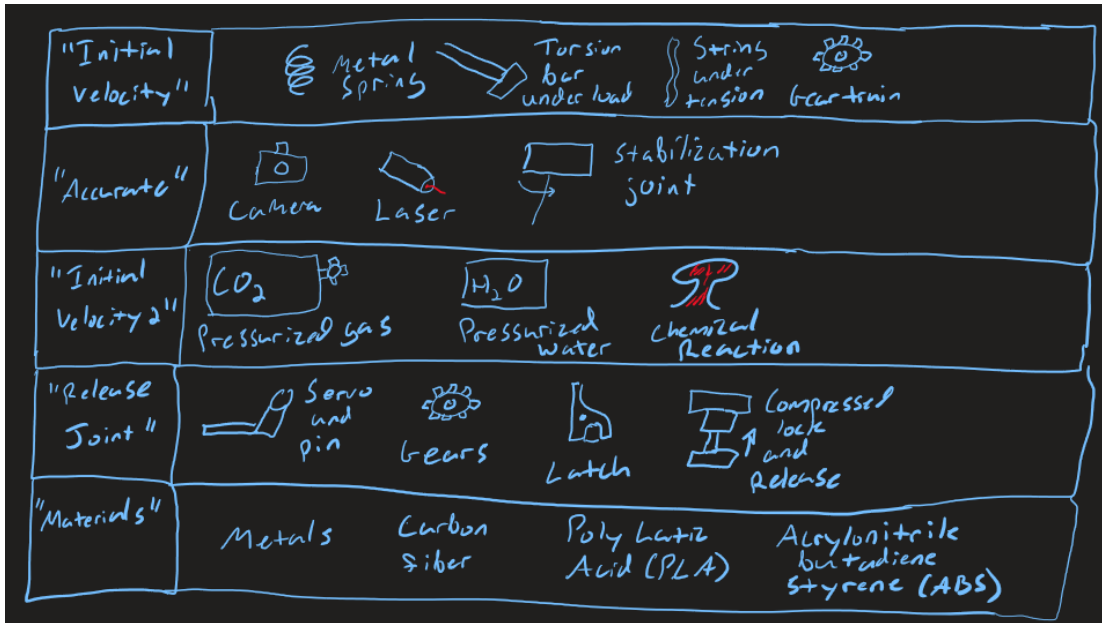 "Initial
Velocity"
Metal
Spring
Torsion
bar
under load
String
under
tension
Gear train
"Accurate"
Camera
Laser
Stabilization
joint
"Initial
Velocity 2"
CO2
Pressurized gas
H2O
Pressurized
water
Chemical
Reaction
"Release
Joint"
Servo
and
pin
Gears
Latch
Compressed
lock
and
Release
"Materials"
Metals
Carbon
fiber
Poly Latic
Acid (PLA)
Acrylonitrile
butadiene
Styrene (ABS)